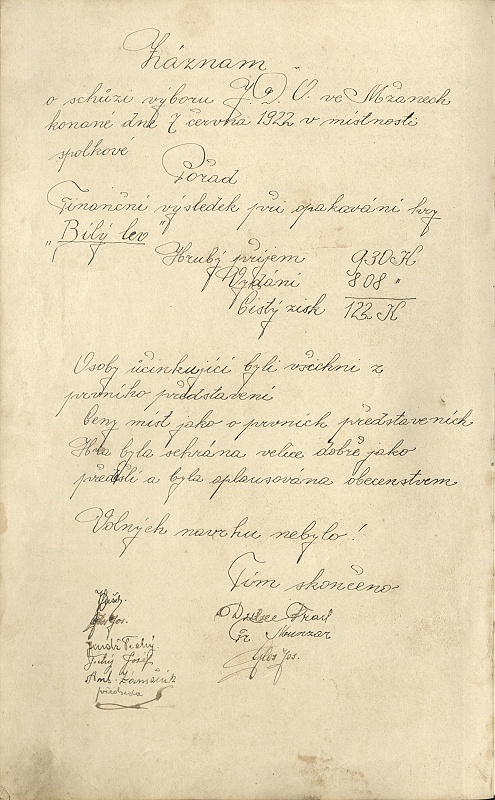 Záznam
o schůzi výboru J. D. O. ve Mžanech
konané dne 7 června 1922 v místnosti
spolkove
Pořad
Finanční výsledek při opakavání hry
„Bílý lev"
Hrubý příjem 930 K
Vydání 808 "
Čistý zisk 122 K
Osoby účinkující byli všichni z
prvního představení
Ceny míst jako o prvních představeních
Hra byla sehrána velice dobře jako
předešlí a byla aplausována obecenstvem
Volnych navrhu nebylo!
Tím skončeno
Glos Jos.
Jindř Tichý
Tichý Josef
Ant. Zámečník
předseda
Frant
Fr Munzar
Glos Jos.